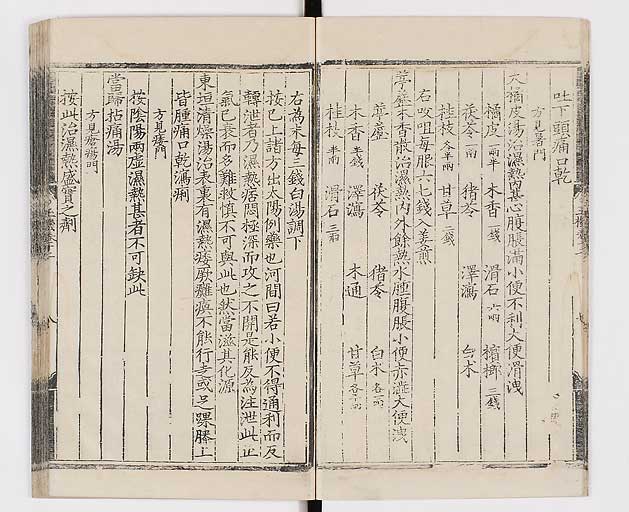 吐下頭痛口乾
方見暑門
大橘皮湯治濕熱內甚心腹脹滿小便不利大便滑洩
橘皮一兩半 木香一錢 滑石六兩 檳榔三錢
茯苓一兩 猪苓 澤瀉 白朮
桂枝各半兩 甘草二錢
右㕮咀每服六七錢入姜煎
葶藶木香散治濕熱內外餘熱水腫腹脹小便赤澁大便洩
葶藶 茯苓 猪苓 白朮各一兩
木香半錢 澤瀉 木通 甘草各半兩
桂枝半兩 滑石三兩
右為末每三錢白湯調下
按已上諸方出太陽例藥也河間曰若小便不得通利而反
轉泄者乃濕熱痞悶極深而攻之不開是能反為注泄此正
氣已衰而多難救慎不可與此也然當滋其化源
東垣清燥湯治表裏有濕熱痿厥癱瘓不能行走或足踝膝上
皆腫痛口乾瀉痢
方見痿門
按陰陽兩虛濕熱甚者不可缺此
當歸拈痛湯
方見瘡瘍門
按此治濕熱盛實之劑